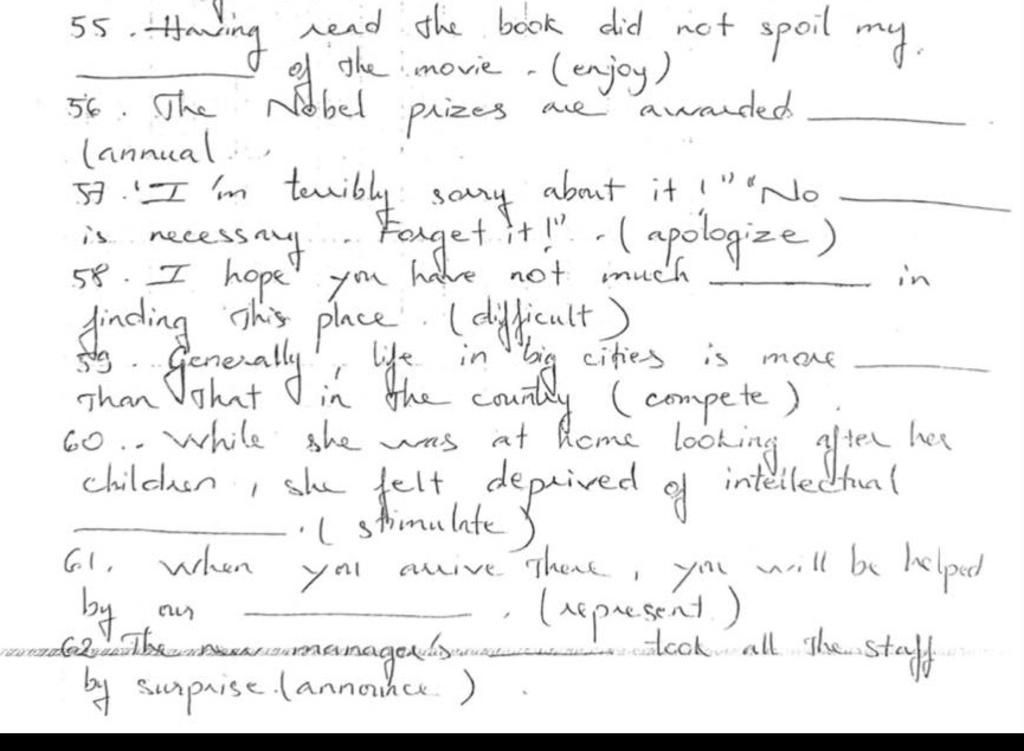 55. Having read the book did not spoil my
__________ of the movie. (enjoy)
56. The Nobel prizes are awarded __________
(annual
57. "I'm terribly sorry about it!" "No __________
is necessary. Forget it!". (apologize)
58. I hope you have not much __________ in
finding this place. (difficult)
59. Generally, life in big cities is more __________
than that in the country (compete)
60.. While she was at home looking after her
children, she felt deprived of intellectual
__________. (stimulate)
61. When you arrive there, you will be helped
by our __________. (represent)
62. The new manager's __________ took all the staff
by surprise. (announce)